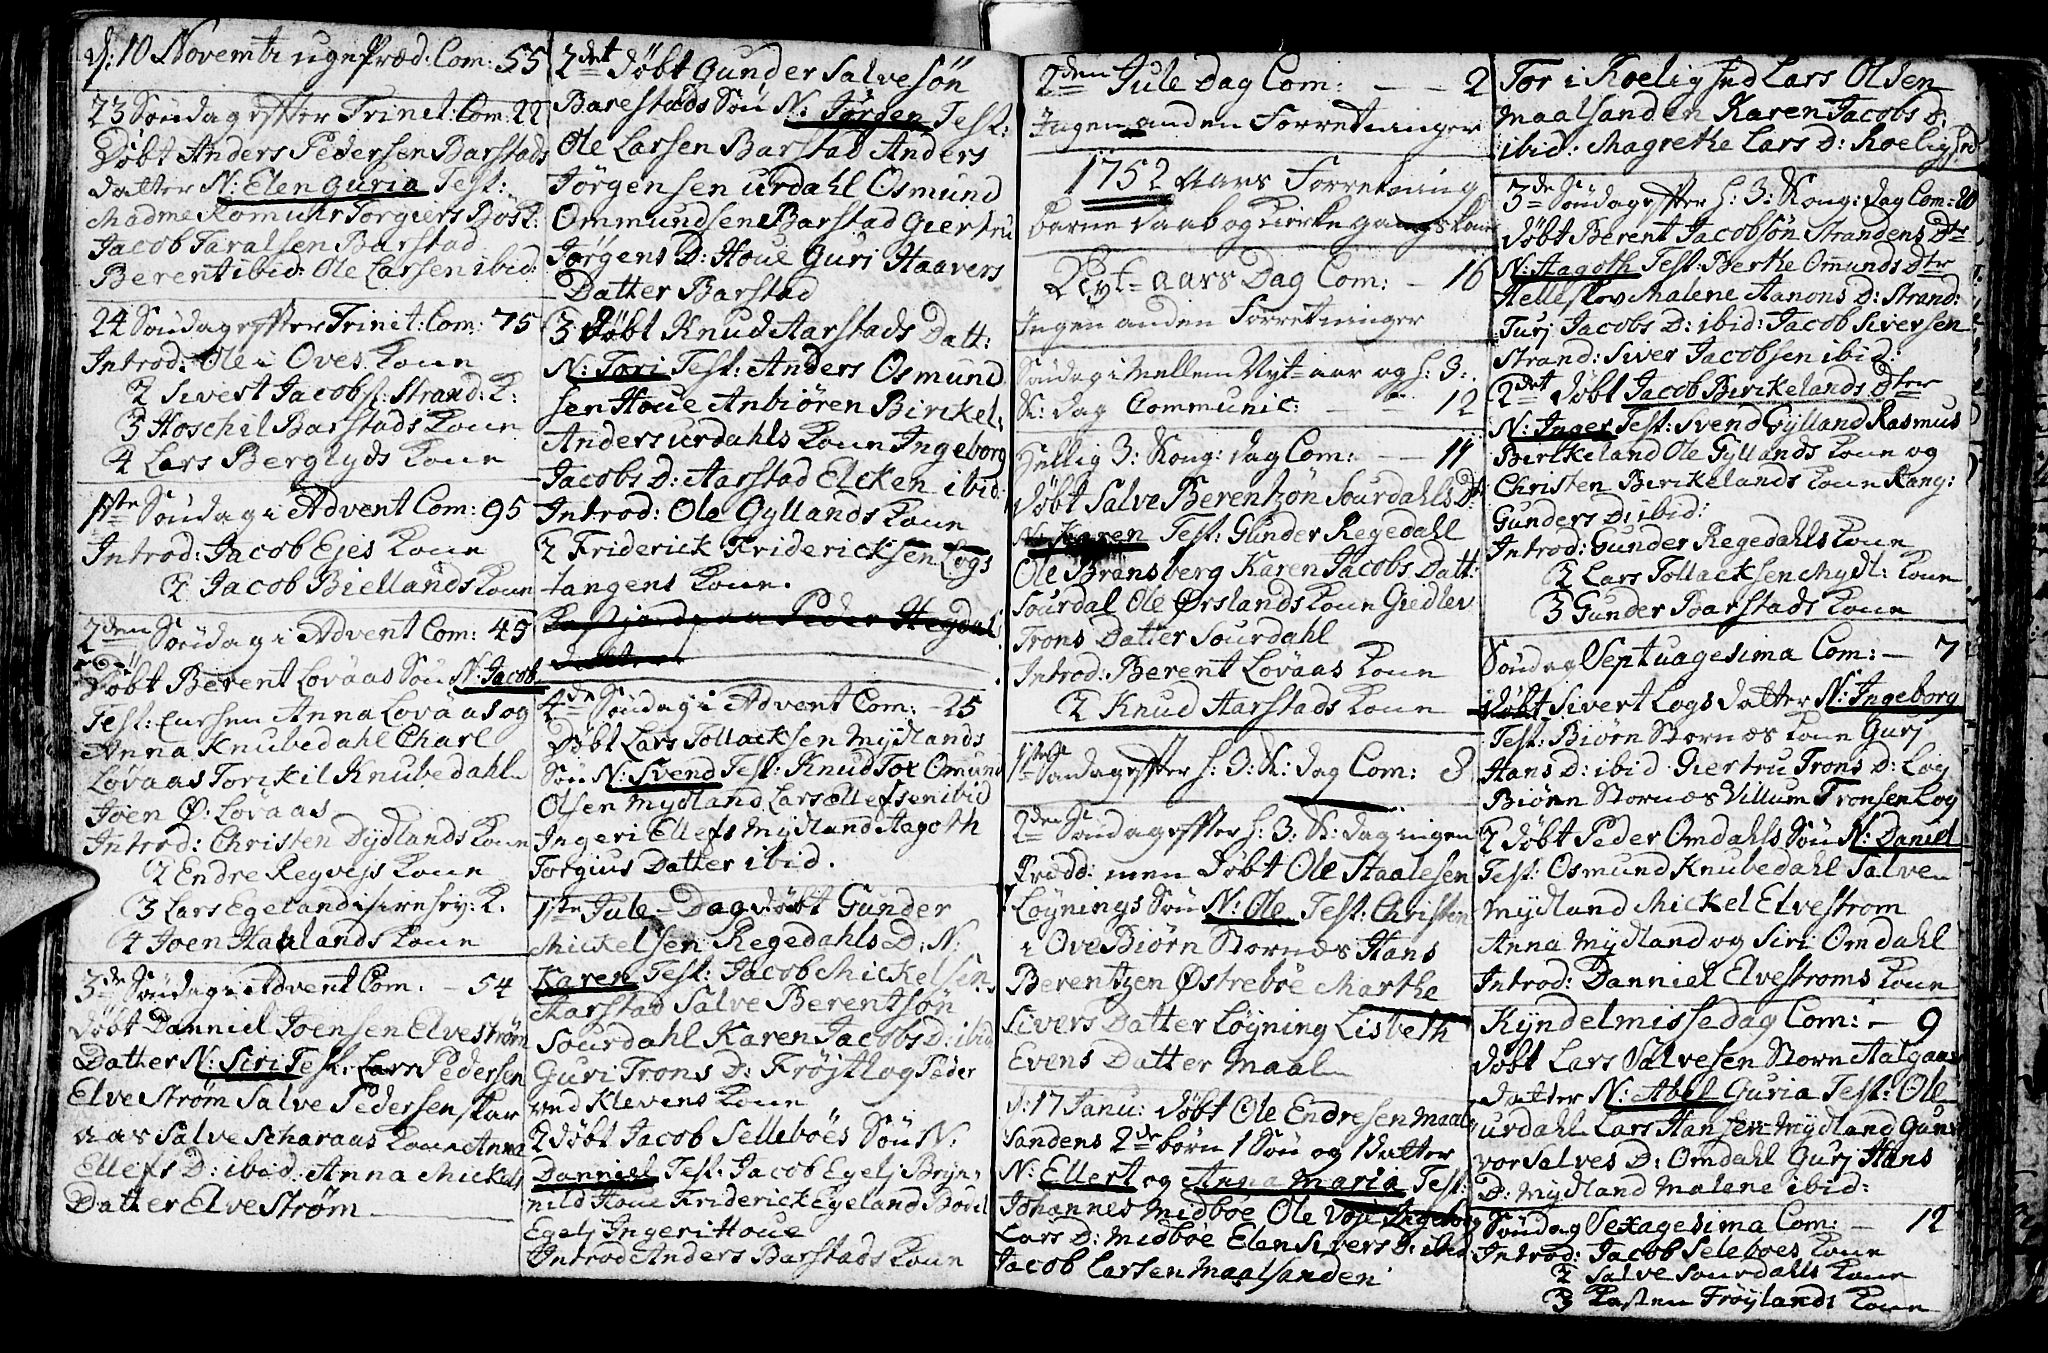 d: 10 Novembr ugePræd: Com: 55
23 Søndag efter Trinit: Com: 22
Døbt Anders Pedersen Barstads
datter N: Elen Guria Test:
Madme Romuhr Torgiers Bösk:
Jacob Taralsen Barstad
Berent ibid: Ole Larsen ibid:
24 Søndag efter Trinit: Com: 75
Introd: Ole i Oves Kone
2 Sivert Jacobs: Strand: K:
3 Hoschil Barstads Kone
4 Lars Berglyds Kone
1ste Søndag i Advent Com: 95
Introd: Jacob Ejes Kone
2 Jacob Biellands Kone
2den Søndag i Advent Com: 45
Døbt Berent Lovaas Søn N: Jacob
Test: Anna Lovaas og
Anna Knubedahl Charl
Lovaas Torckil Knubedahl
Joen Ø: Lovaas
Introd: Christen Dydlands Kone
2 Endre Regvejs Kone
3 Lars Egeland K:
4 Joen Haalands Kone
3de Søndag i Advent Com: - 54
Døbt Danniel Joensen Elvestrøm
Datter N: Siri Test: Lars Pedersen
Elvestrøm Salve Pedersen Skar
aas Salve Scharaas Kone Anna
Ellefs D: ibid: Anna Mickels
Datter Elvestrøm
2det Døbt Gunder Salvesøn
Barestads Søn N: Jörgen Test:
Ole Larsen Barstad Anders
Jörgensen Urdahl Osmund
Ommundsen Barstad Giertru
Jørgens D: Houe Guri Haavers
Datter Barstad
3 Døbt Knud Aarstads Datt:
N: Tori Test: Anders Osmund
sen Houe Anbiören Birckel:
Anders Urdahls Kone Ingeborg
Jacobs D: Aarstad Elcken ibid:
Introd: Ole Gyllands Kone
2 Friderick Fridericksen Logs
tangens Kone.
Peder Hegdal
datter
4de Søndag i Advent Com: - 25
Døbt Lars Tollacksen Mydlands
Søn N: Svend Test: Knud Tor Omund
Olsen Mydland Lars Ellefsen ibid
Ingeri Ellefs Mydland Aagoth
Torgius Datter ibid.
1ste Jule-Dag døbt Gunder
Mickelsen Regedahls D: N:
Karen Test: Jacob Mickelsen
Aarstad Salve Berentsøn
Sourdahl Karen Jacobs D: ibid
Guri Trons D: Frøjtlog Peder
ved Klevens Kone
2 Døbt Jacob Selleböes Søn N:
Danniel Test: Jacob Egelj Bryn
nild Houe Friderick Egeland Bodil
Egelj Ingeri Houe
Introd Anders Barstads Kone
2den Jule Dag Com: - - 2
Ingen anden Forretninger
1752 Aars Forretning
barne daab og Kirkegangs Kone
Nyt-aars Dag Com: - 16
Ingen anden Forretninger
Søndag i mellem Nyt-aar og h: 3:
K: dag Communic: - 12
Hellig 3: Kong: dag Com: - - 14
Døbt Salve Berentzøn Sourdahls D:
N: Karen Test: Gunder Regedahl
Ole Bransberg Karen Jacobs Datt:
Sourdal Ole Ørslands Kone Giedlev
Trons Datter Sourdahl
Introd: Berent Lovaas Kone
2 Knud Aarstads Kone
1ste Søndag efter h: 3: K: dag Com: 8
2den Søndag efter h: 3: K: dag ingen
Præd: men Døbt Ole Staalesen
Løynings Søn N: Ole Test: Christen
i Ove Biørn Stornæs Hans
Berentzen Østrebøe Marthe
Sivers Datter Løyning Lisbeth
Evens Datter Maal
d: 17 Janu: døbt Ole Endresen Maal
sandens 2de børn 1 Søn og 1 Datter
N: Ellert og Anna Maria Test:
Johannes Midbøe Ole Vose Ingeborg
Lars D: Midbøe Elen Sivers D: ibid
Jacob Larsen Maalsanden
Tor i Roelighed Lars Olsen
Maalsanden Karen Jacobs D:
ibid: Magrethe Lars D: Roelighed
3de Søndag efter h: 3: Kong: dag Com: 20
Døbt Berent Jacobsøn Strandens Dtr
N: Aagoth Test: Berthe Omunds Dtr
Helleskov Malene Aanons D: Strand:
Turj Jacobs D: ibid: Jacob Siversen
Strand: Siver Jacobsen ibid:
2det Døbt Jacob Birkelands Dtr
N: Inger Test: Svend Gylland Rasmus
Birckeland Ole Gyllands Kone og
Christen Birckelands Kone Rang:
Gunders D: ibid:
Introd: Gunder Regedahls Kone
2 Lars Tollacksen Mydl: Kone
3 Gunder Barstads Kone
Søndag Septuagesima Com: - 7
Døbt Sivert Logs datter N: Ingeborg
Test: Biørn Stornæs Kone Gurj
Hans D: ibid Giertru Trons D: Log
Biørn Stornæs Villum Tronsen Log
2 Døbt Peder Omdahls Søn N: Daniel
Test: Osmund Knubedahl Salve
Mydland Mickel Elvestrom
Anna Mydland og Siri Omdahl
Introd: Danniel Elvestroms Kone
Kyndelmissedag Com: - 9
Døbt Lars Salvesen Storn Aalgaar
datter N: Abel Guria Test: Ole
Urdahl Lars Hansen Mydland Gun
vor Salves D: Omdahl Gurj Hans
D: Mydland Malene ibid:
Søndag Sexagesima Com: - 12
Introd: Jacob Seleboes Kone
2 Salve Sourdahls Kone
3 Kasten Frøylands Kone